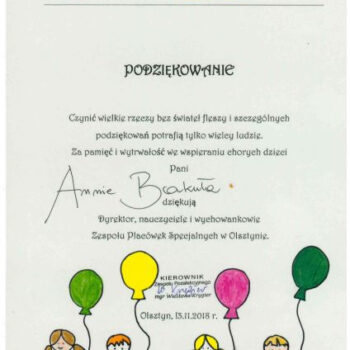 PODZIĘKOWANIE
Czynić wielkie rzeczy bez świateł fleszy i szczególnych
podziękowań potrafią tylko wielcy ludzie.
Za pamięć i wytrwałość we wspieraniu chorych dzieci
Pani
Annie Brakuła
dziękują
Dyrektor, nauczyciele i wychowankowie
Zespołu Placówek Specjalnych w Olsztynie.
KIEROWNIK
Zespołu Pozalekcyjnego
mgr
Olsztyn, 13.11.2018 r.